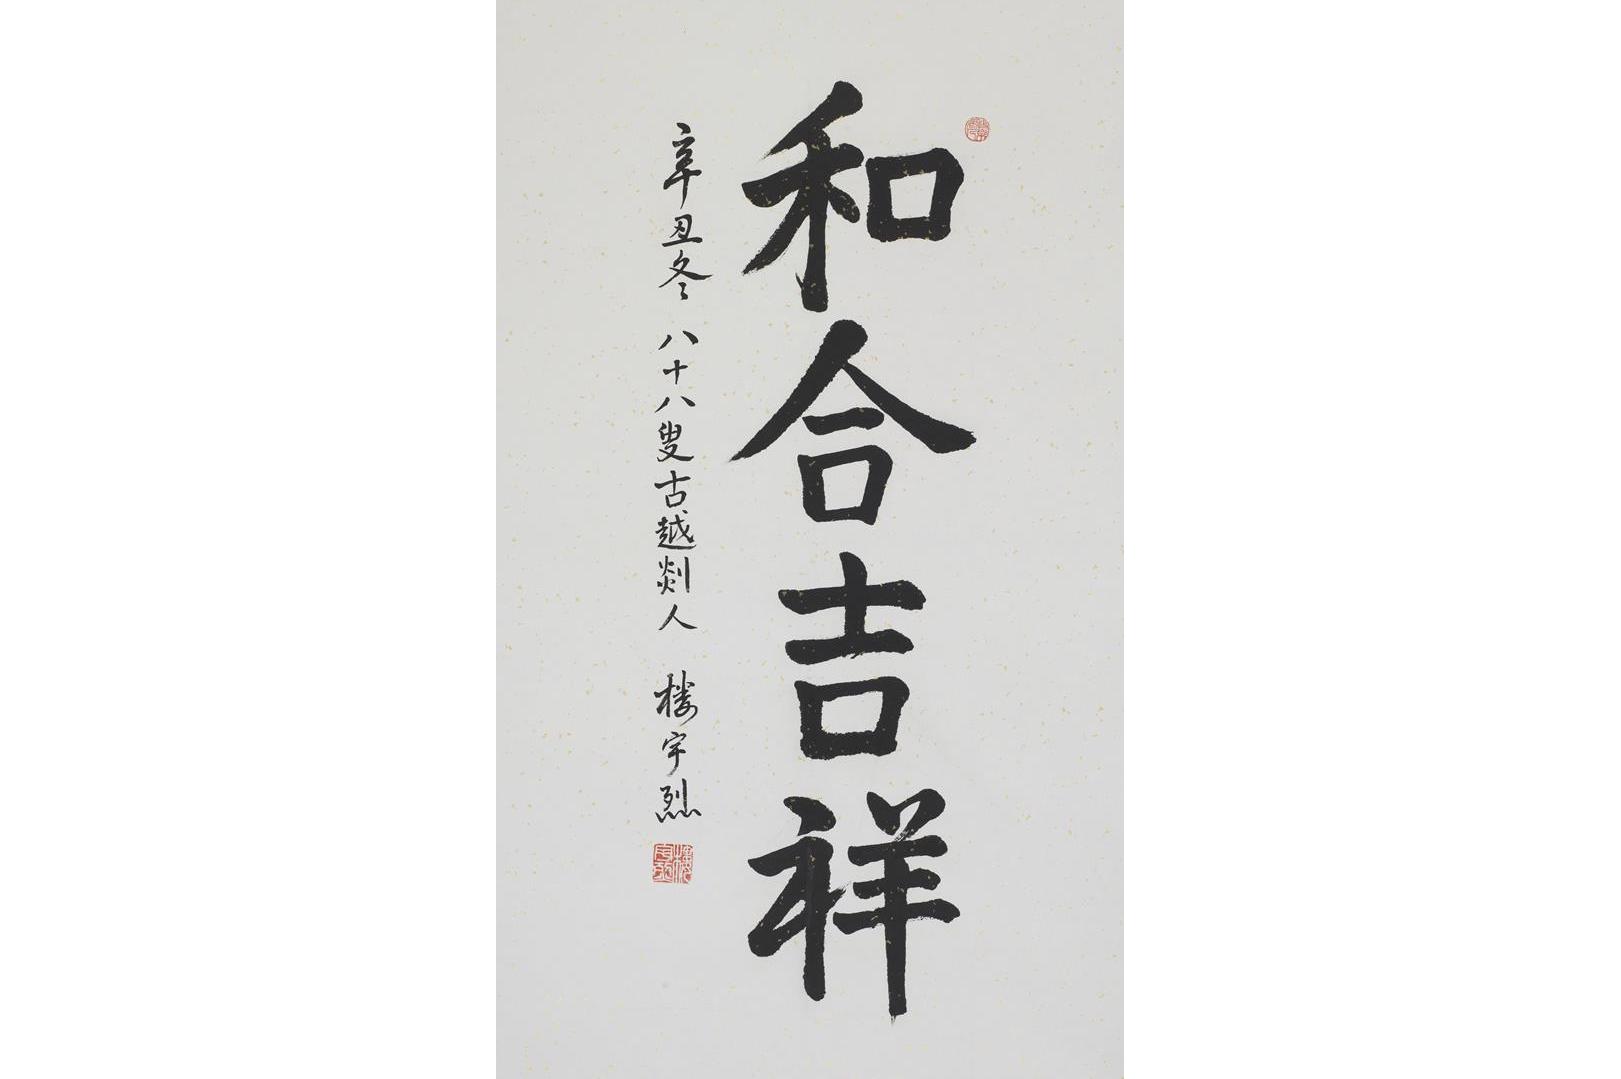 和合吉祥
辛丑冬 八十八叟古越剡人 楼宇烈